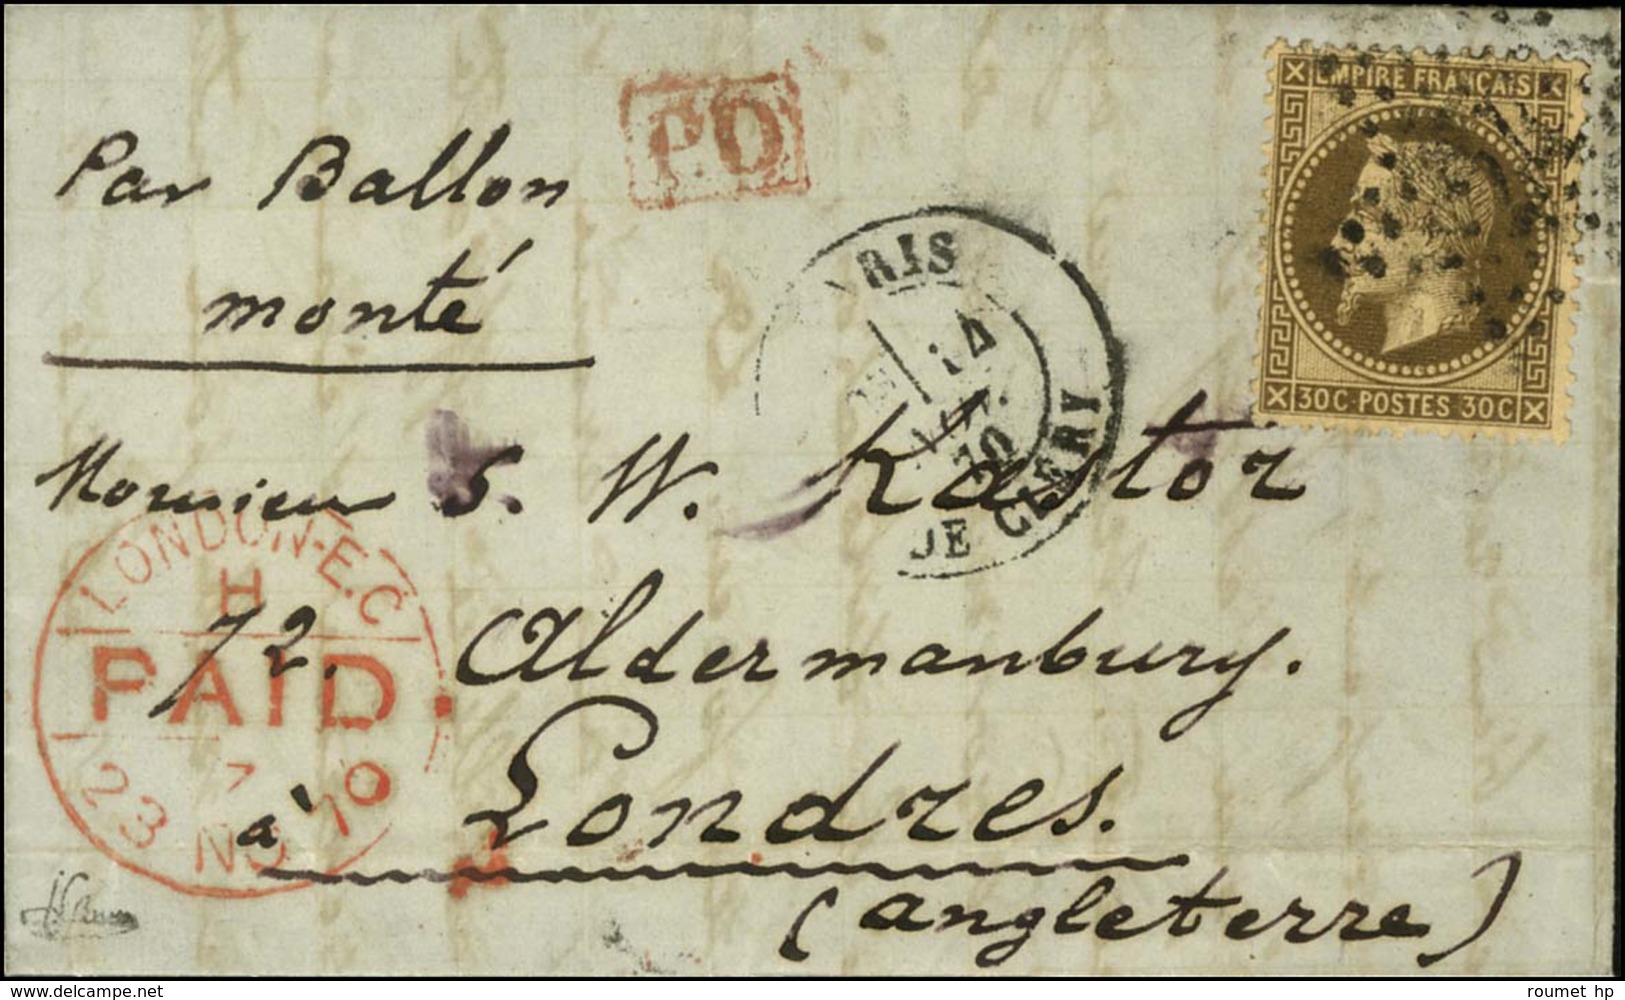 EMPIRE FRANÇAIS
P.O
Par Ballon
monté
PARIS
14
70
DE CLERY
30C POSTES 30C
Monsieur S. W. Kastor
LONDON-E.C
H
72. Aldermanbury.
PAID
7
23 NO 70
à Londres.
(Angleterre)
delcampe.net
roumet hp